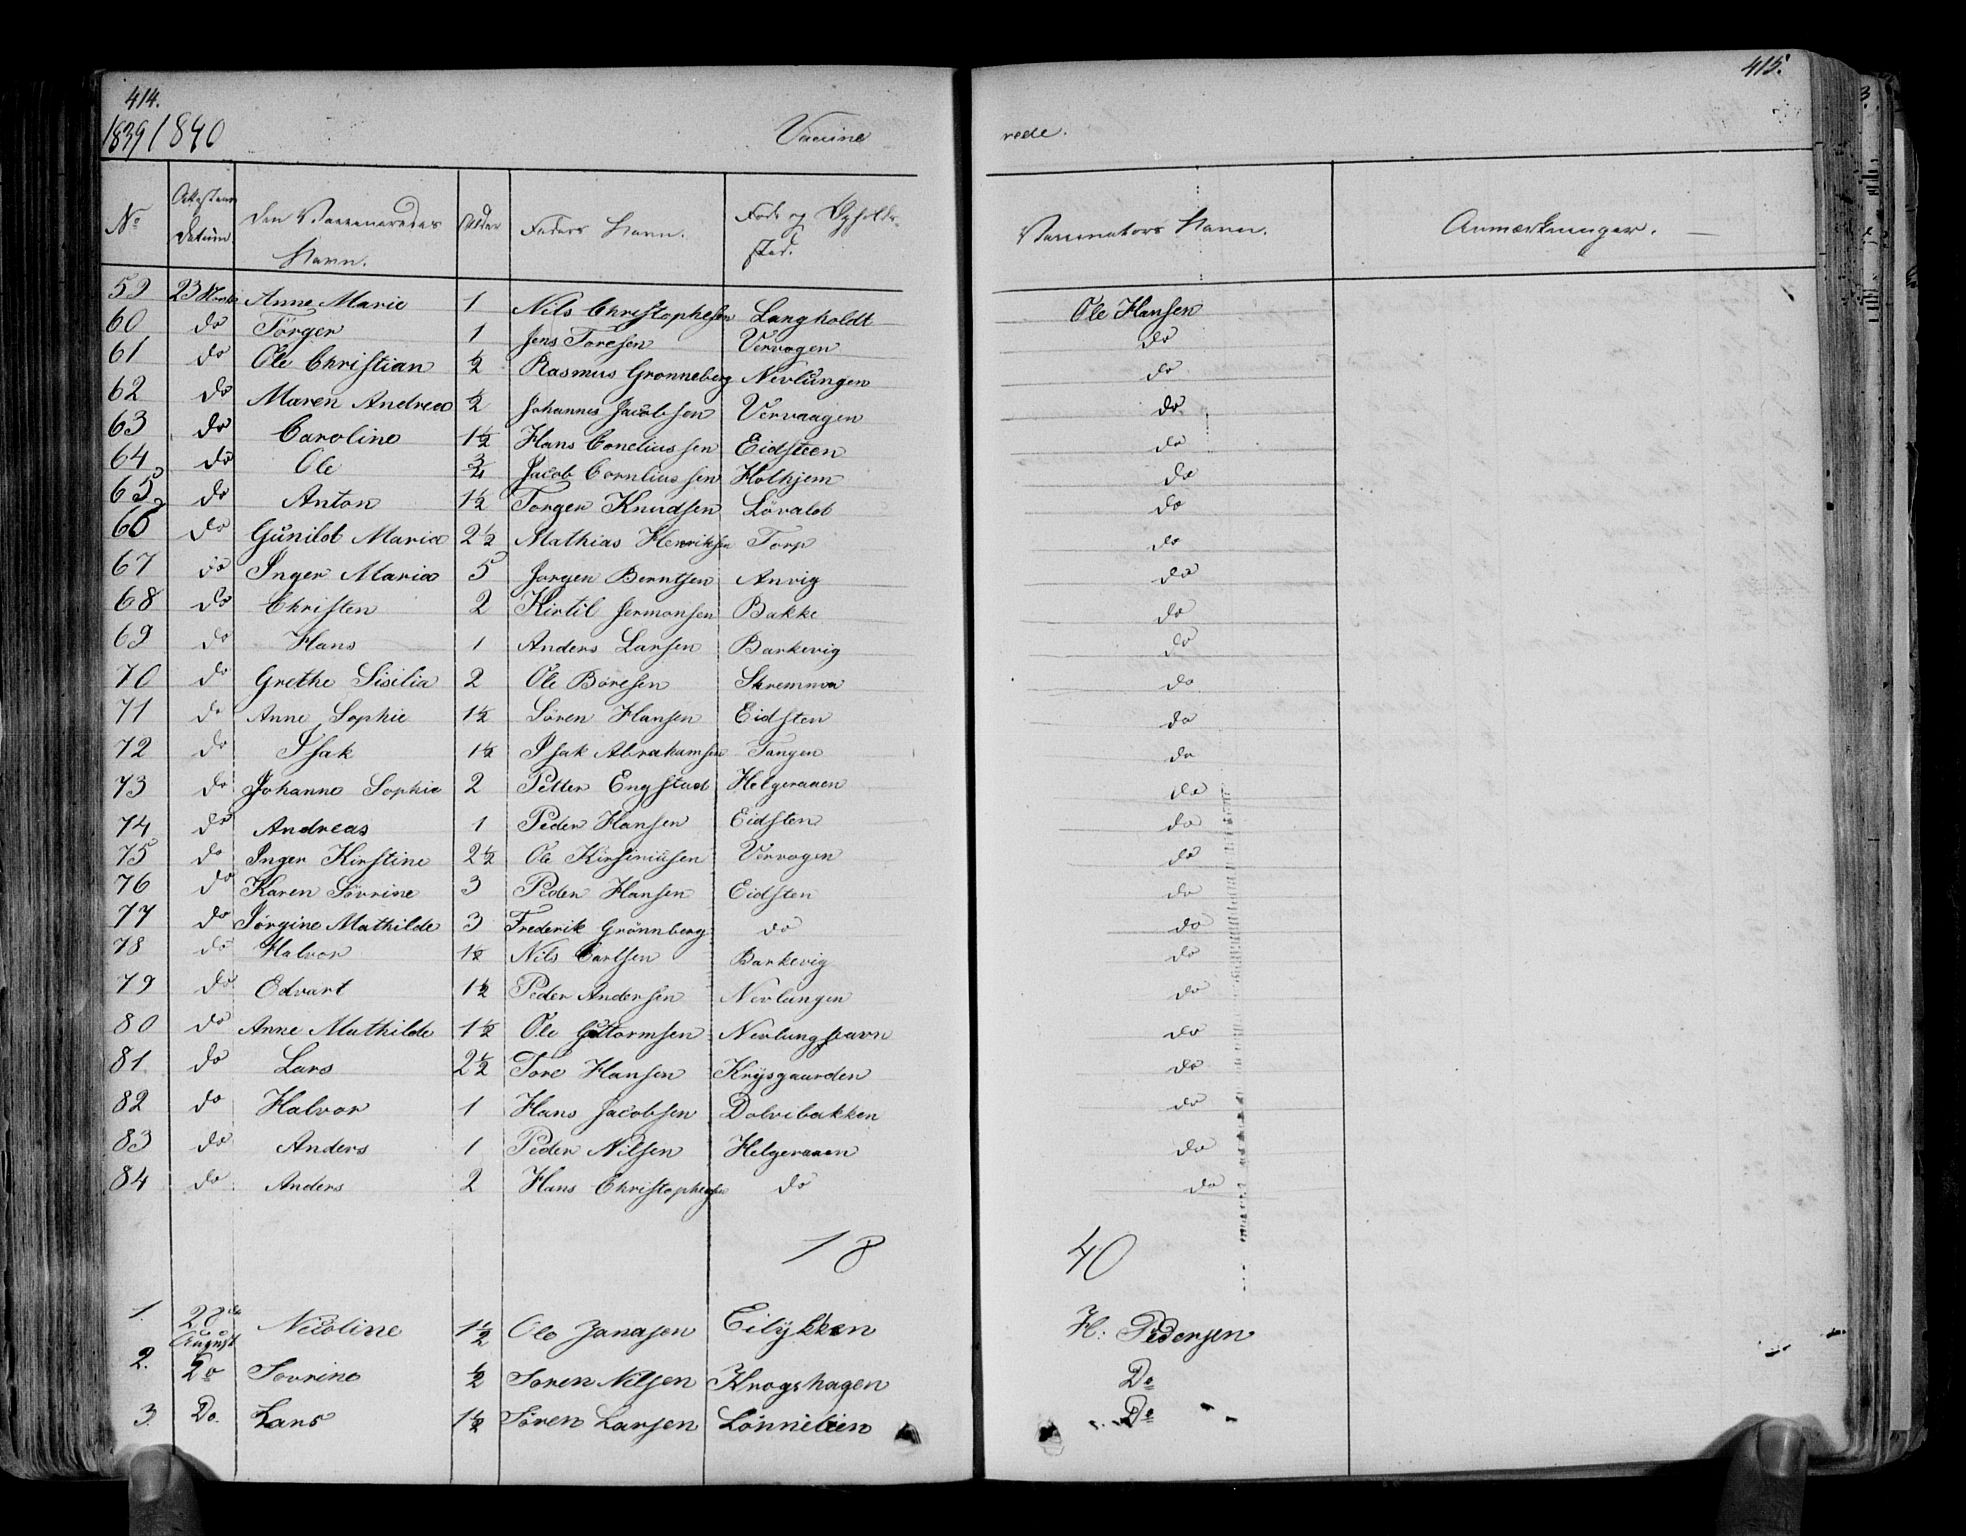 414. 415.
1839/1840 Vaccine rede.
No Attestens Datum. Den Vaccineredes Navn. Alder Faders Navn. Føde og Opholds sted. Vaccinators Navn. Anmærkninger.
59 23 Anne Marie 1 Nils Christophesen Langholdt Ole Hansen
60 do Törger 1 Jens Toresen Vervogen do
61 do Ole Christian ½ Rasmus Gronneberg Nevlungen do
62 do Maren Andrea ½ Johannes Jacobsen Vervaagen do
63 do Caroline 1½ Hans Coneliussen Eidsteen do
64 do Ole ¾ Jacob Corneliussen Holhjem do
65 do Anton 1½ Torger Knudsen Lövald do
66 do Gunild Maria 2½ Mathias Henriksen Torp do
67 do Inger Maria 5 Jorgen Berntsen Anvig do
68 do Christen 2 Kirtil Jermonsen Bakke do
69 do Hans 1 Anders Larsen Barkevig do
70 do Grethe Sisilia 2 Ole Boresen Skremmen do
71 do Anne Sophie 1½ Sören Hansen Eidsten do
72 do Isak 1½ Isak Abrahamsen Tangen do
73 do Johanne Sophie 2 Petter Engstad Helgeraaen do
74 do Andreas 1 Peder Hansen Eidsten do
75 do Inger Kirstine 2½ Ole Kirsiniusen Vervogen do
76 do Karen Sövrine 3 Peder Hansen Eidsten do
77 do Jörgine Mathilde 3 Frederik Grönnberg do do
78 do Halvor 1½ Nils Carlsen Barkevig do
79 do Edvart 1½ Peder Andersen Nevlungen do
80 do Anne Mathilde 1½ Ole Guttormsen Nevlunghavn do
81 do Lars 2½ Tore Hansen Krysgaarden do
82 do Halvor 1 Hans Jacobsen Dolvibakken do
83 do Anders 1 Peder Nilsen Helgeraaen do
84 do Anders 2 Hans Christophersen do do
18 40
1. 28de August Nicoline 1½ Ole Janasen Eilykken H: Pedersen
2. Do Sovrine ½ Soren Nilsen Krogshagen Do
3. Do. Lars 1½ Sören Larsen Lönnelien Do